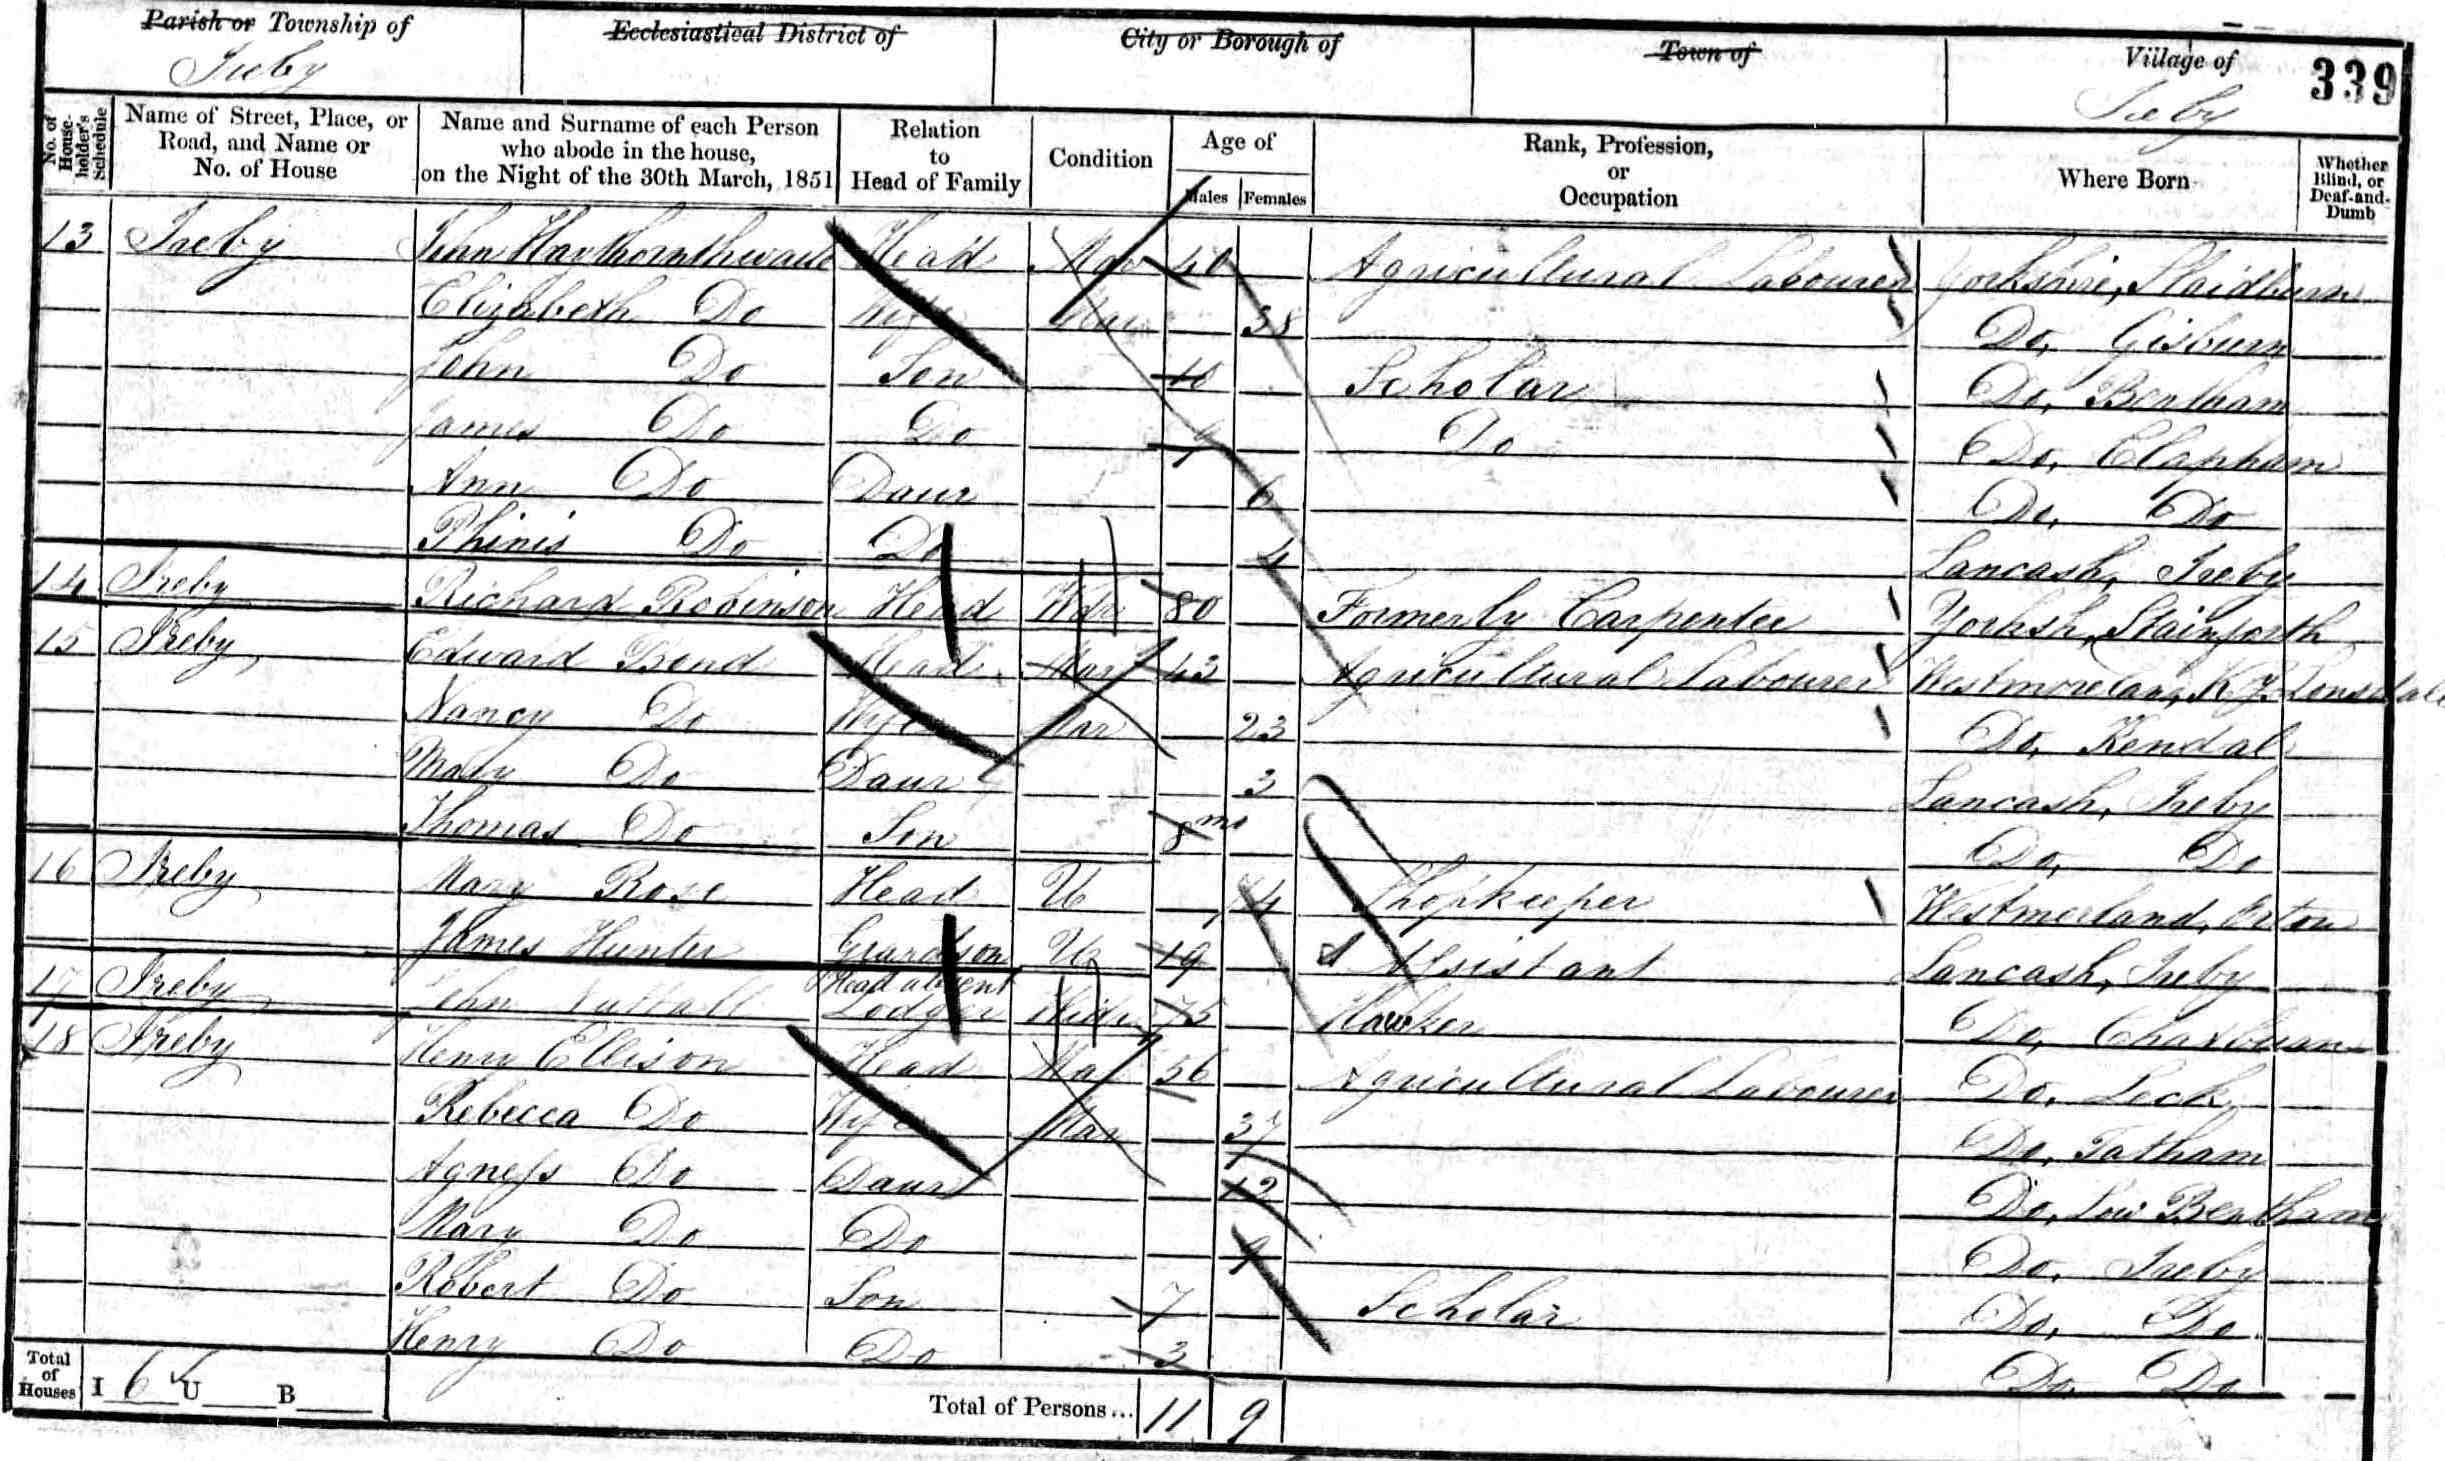 Parish or Township of Ecclesiastical District of City or Borough of Town of Village of 339
Ireby Ireby
No. of House-holder's Schedule Name of Street, Place, or Road, and Name or No. of House Name and Surname of each Person who abode in the house, on the Night of the 30th March, 1851 Relation to Head of Family Condition Age of Males Females Rank, Profession, or Occupation Where Born Whether Blind, or Deaf-and-Dumb
13 Ireby John Hawthornthwaite Head Mar 40 Agricultural Labourer Yorkshire, Slaidburn
Elizabeth Do Wife Mar 38 Do, Gisburn
John Do Son 10 Scholar Do, Bentham
James Do Do 9 Do Do, Clapham
Ann Do Daur 6 Do, Do
Phinis Do Do 4 Lancash, Ireby
14 Ireby Richard Robinson Head Wdr 80 Formerly Carpenter Yorksh, Stainforth
15 Ireby Edward Bend Head Mar 43 Agricultural Labourer Westmoreland, K. Lonsdale
Nancy Do Wife Mar 23 Do, Kendal
Mary Do Daur 3 Lancash, Ireby
Thomas Do Son 8 mo Do, Do
16 Ireby Mary Rose Head U 74 Shopkeeper Westmorland, Orton
James Hunter Grandson U 19 Assistant Lancash, Ireby
17 Ireby John Nuttall Head absent Lodger Widr 75 Hawker Do,
18 Ireby Henry Ellison Head Mar 56 Agricultural Labourer Do, Leck
Rebecca Do Wife Mar 37 Do, Tatham
Agness Do Daur 12 Do, Low Bentham
Mary Do Do 9 Do, Ireby
Robert Do Son 7 Scholar Do, Do
Henry Do Do 3 Do, Do
Total of Houses I 6 U B Total of Persons... 11 9